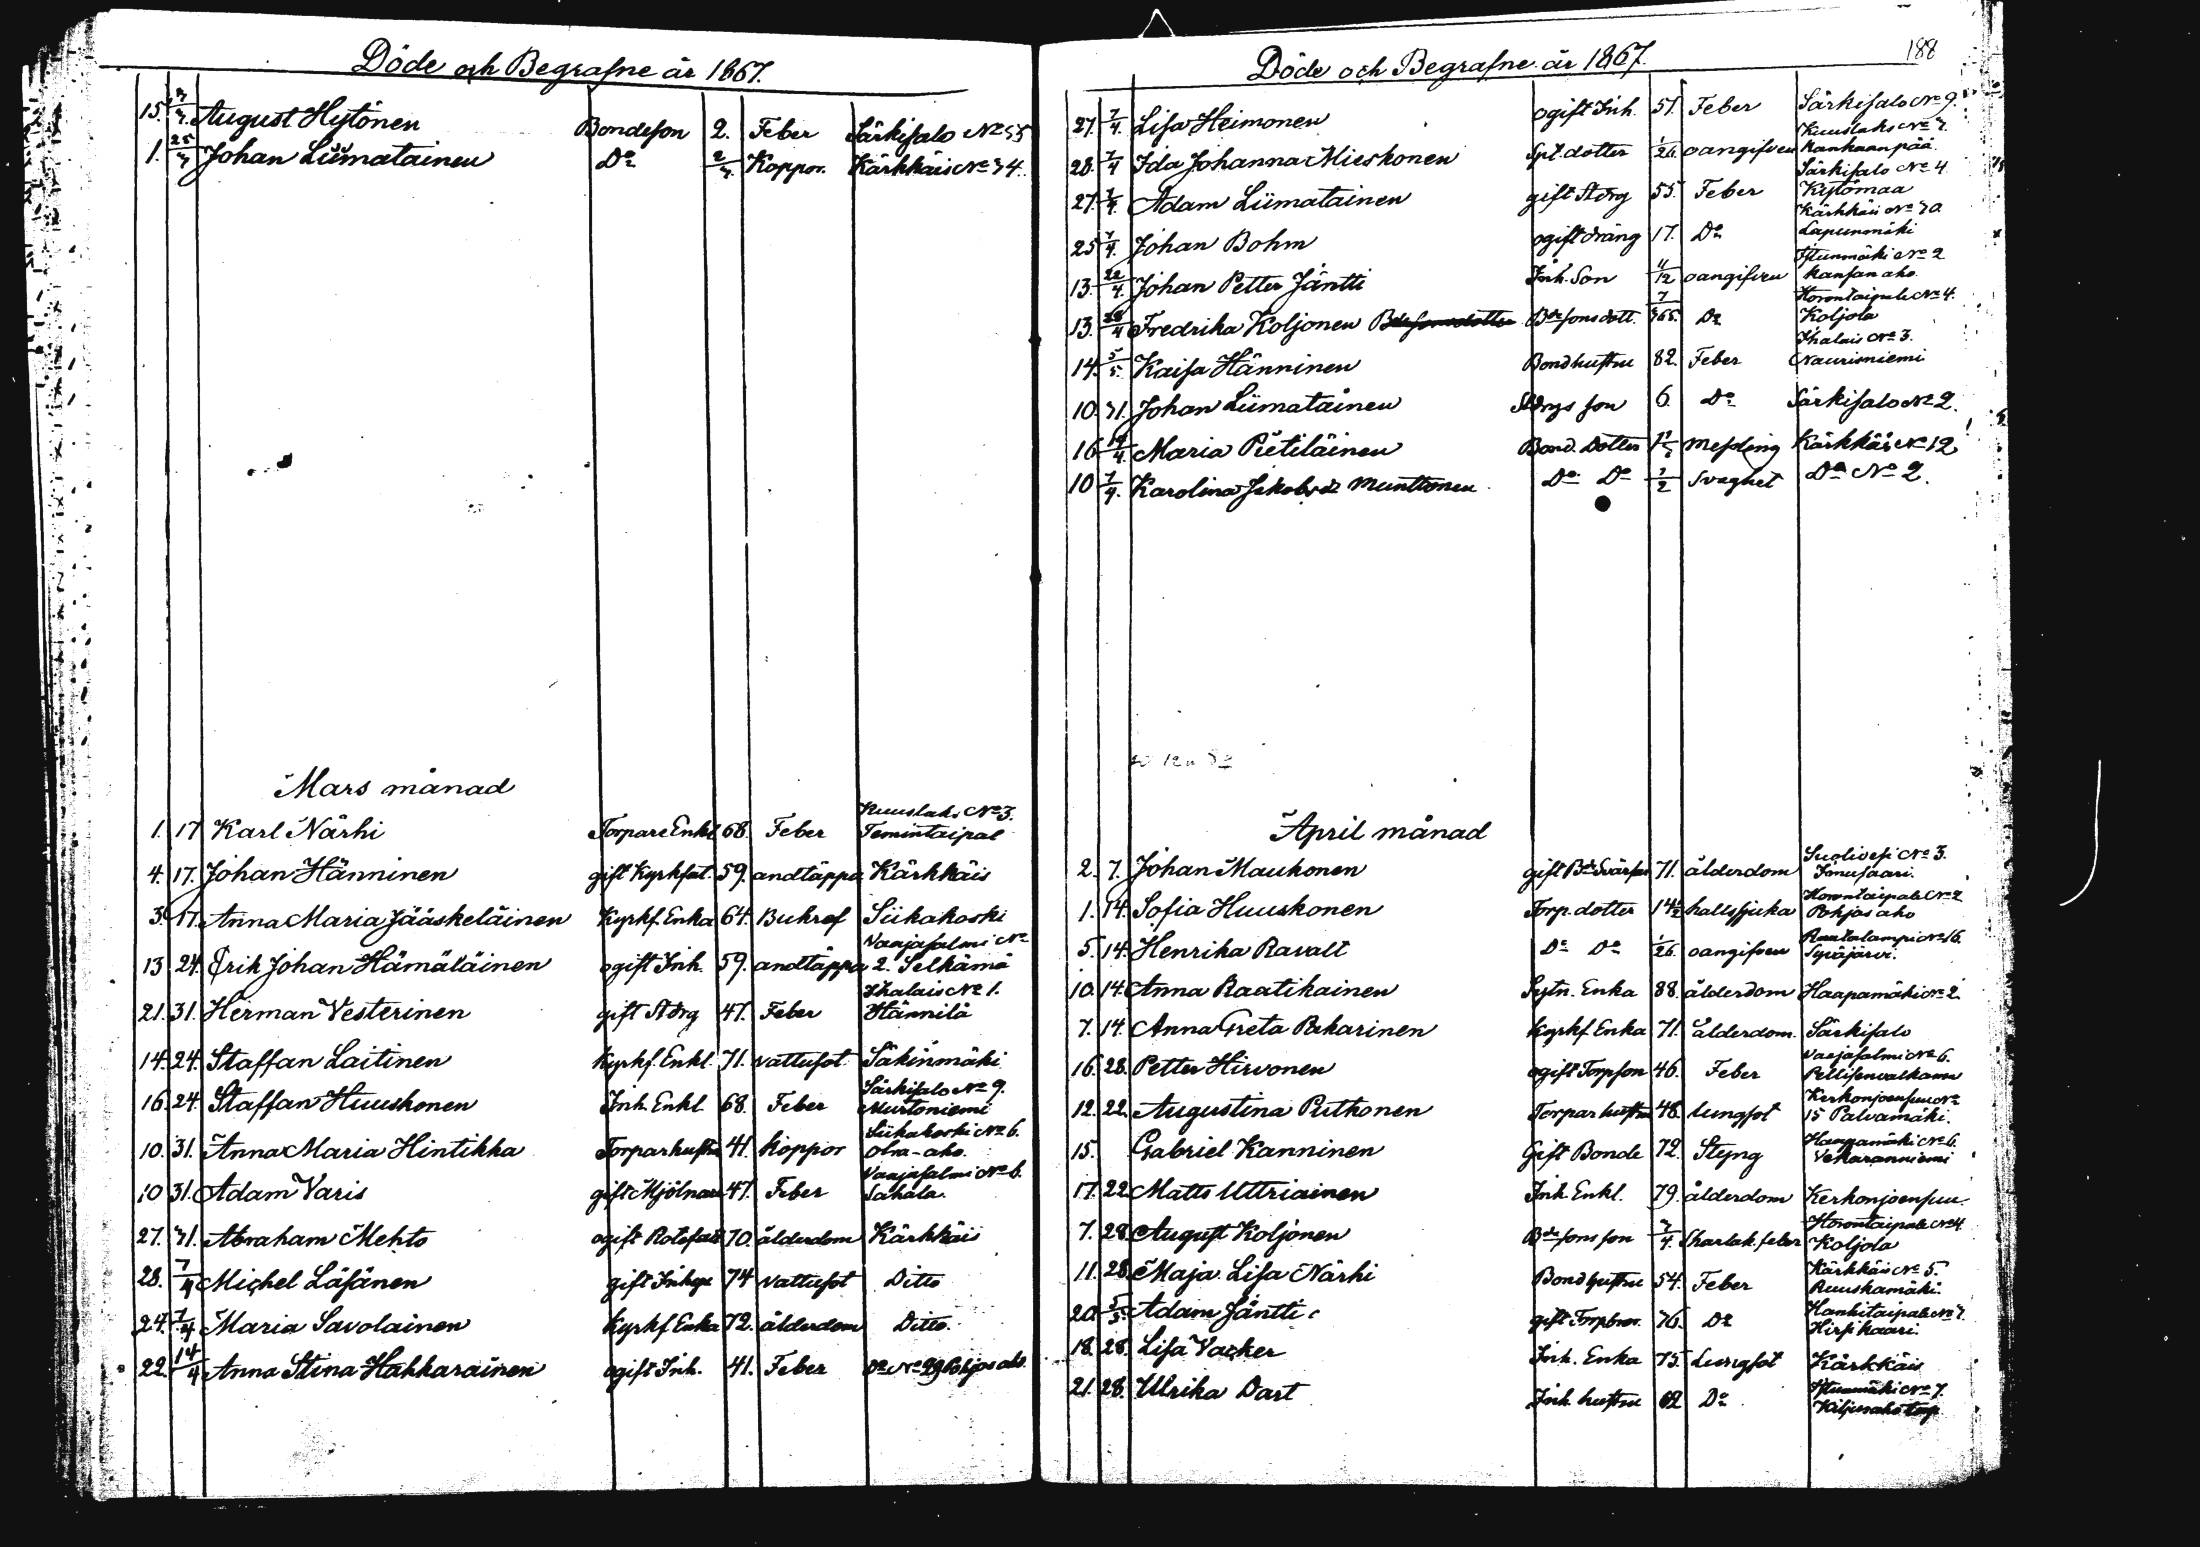 Döde och Begrafne år 1867.
15. 3/3. August Hytönen Bondeson 2. Feber Särkisalo No 35
1. 25/3 Johan Liimatainen Do 2/3. Koppor. Kärkkäis No 34.
Mars månad
Kuuslaks No 3.
1. 17 Karl Närhi Torpare Enkl 68. Feber Temintaipal
4. 17. Johan Hänninen gift Kyrkfat. 59. andtäppa Kärkkäis
3. 17. Anna Maria Jääskeläinen Kyrkf. Enka 64. Bukref Siikakoski
Vaajasalmi No
13 24. Erik Johan Hämäläinen ogift Inh. 59. andtäppa 2. Selkämä
Ihalais No 1.
21. 31. Herman Vesterinen gift Stdrg 47. Feber Hännilä
14. 24. Staffan Laitinen Kyrkf. Enkl. 71. vattusot Säkinmäki
Särkisalo No 9.
16. 24. Staffan Huuskonen Inh. Enkl. 68. Feber Murtoniemi
Siikakoski No 6.
10. 31. Anna Maria Hintikka Torparhustru 41. Koppor Olra-aho.
Vaajasalmi No 6.
10 31. Adam Varis gift Mjölnare 47. Feber Sahala.
27. 31. Abraham Mehto ogift Rotefatt 70. ålderdom Kärkkäis
28. 7/4 Michel Läsänen gift Inhys 74 vattusot Ditto
24. 7/4 Maria Savolainen Kyrkf Enka 72. ålderdom Ditto.
22. 14/4 Anna Stina Hakkarainen ogift Inh. 41. Feber Do No 29 Pohjos aho.
Döde och Begrafne år 1867. 188
27. 7/4. Lisa Heimonen ogift Inh. 51. Feber Särkisalo No 9.
Kuuslaks No 3.
28. 7/4 Ida Johanna Mieskonen Spt. dotter 1/26. oangifven Kankaanpää.
Särkisalo No 4.
27. 7/4. Adam Liimatainen gift Stdrg 55. Feber Kytömaa
Kärkkäis No 30.
25 7/4. Johan Bohm ogift dräng 17. Do Lapunmäki
Istunmäki No 2
13. 22/4. Johan Petter Jäntti Inh. Son 11/12 oangifven Kansan aho.
Horontaipale No 4.
13. 28/4 Fredrika Koljonen Bdesonsdotter Bdesons dott. 7/365. Do Koljola
Ihalais No 3.
14. 5/5. Kaisa Hänninen Bondhustru 82. Feber Naurisniemi
10. 31. Johan Liimatainen Stdrgs son 6. Do Särkisalo No 2.
16 14/4. Maria Pietiläinen Bond. Dotter Messling Kärkkäis No 12
10 7/4. Karolina Jakobsdr Munttonen Do Do 1/2 Svaghet Do No 2.
April månad
Suolivesi No 3.
2. 7. Johan Maukonen gift Bde Svärfar 71. ålderdom Iinusaari.
Horontaipale No 2
1. 14. Sofia Huuskonen Torp. dotter 14 1/2 halssjuka Pohjos aho
Rautalampi No 16.
5. 14. Henrika Ravatt Do Do 1/26. oangifven Syväjärvi.
10. 14. Anna Raatikainen Sytn. Enka 88. ålderdom Haapamäki No 2.
7. 14. Anna Greta Pekarinen Kyrkf Enka 71. ålderdom. Särkisalo
Vaajasalmi No 6.
16. 28. Petter Hirvonen ogift Torpson 46. Feber Pellisenvalkama
Kerkonjoensuu No
12. 22. Augustina Puthonen Torpar hustru 48. lungsot 15 Palvamäki.
Haapamäki No 6.
15. Gabriel Kanninen Gift Bonde 72. Styng Vekaranniemi
17. 22. Matts Uttriainen Inh. Enkl. 79. ålderdom Kerkonjoensuu
Horontaipale No 4
7. 28. August Koljonen Bdesons son 3/4. Skarlak. feber Koljola
Kärkkäis No 5.
11. 28. Maja Lisa Närhi Bondhustru 54. Feber Ruuskamäki.
Hankitaipale No 7.
20. 5/5. Adam Jäntti gift Torpbror. 76. Do Hirsikaari.
18. 28. Lisa Vacker Inh. Enka 75. Lungsot Kärkkäis
Istunmäki No 7.
21. 28. Ulrika Dart Inh. hustru 62 Do Kiljusaho torp